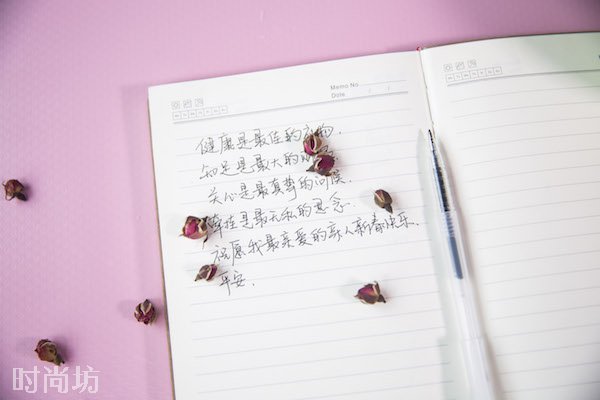 Memo No
Date / /
健康是最佳的礼物.
知足是最大的
关心是最真挚的问候.
牵挂是最无私的思念.
祝愿我最亲爱的亲人新春快乐.
平安.
时尚坊